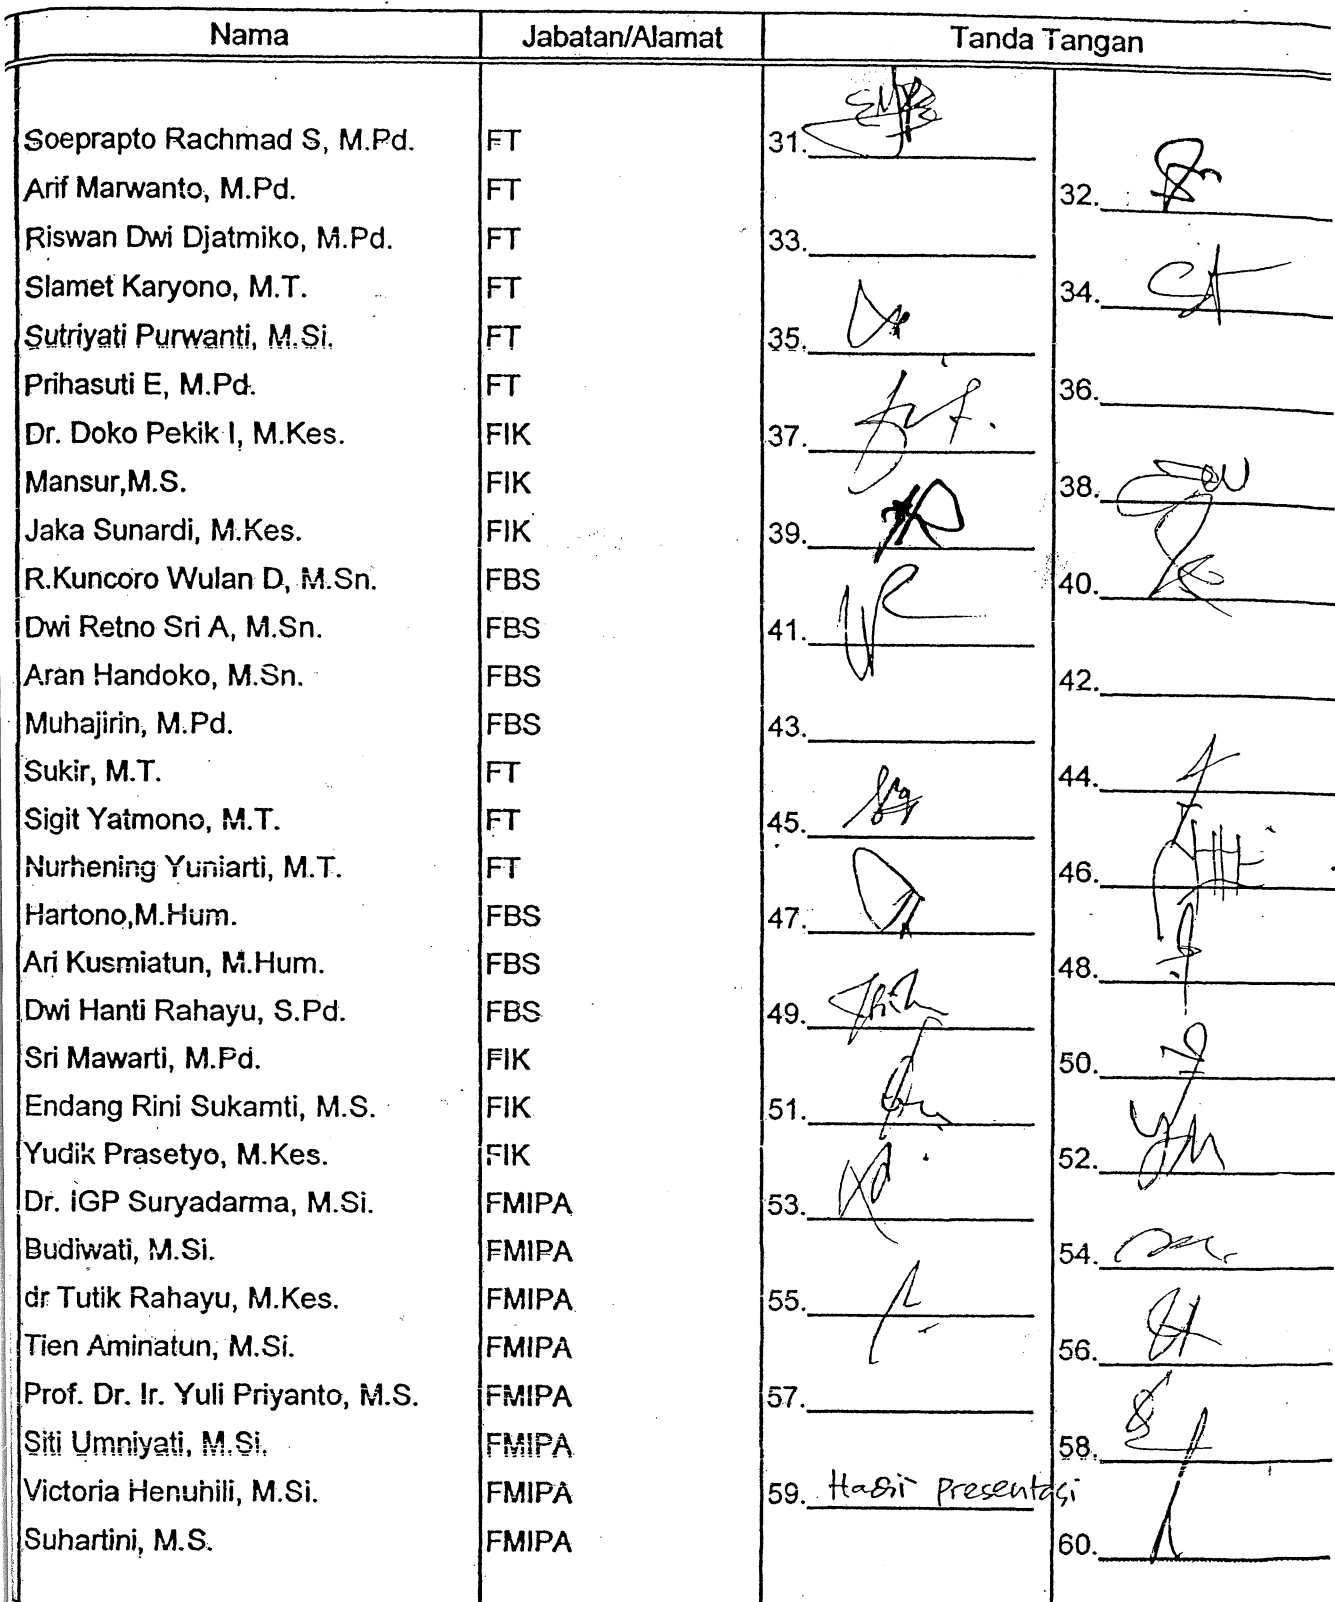 Nama Jabatan/Alamat Tanda Tangan
Soeprapto Rachmad S, M.Pd. FT 31.
Arif Marwanto, M.Pd. FT 32.
Riswan Dwi Djatmiko, M.Pd. FT 33.
Slamet Karyono, M.T. FT 34.
Sutriyati Purwanti, M.Si. FT 35.
Prihasuti E, M.Pd. FT 36.
Dr. Doko Pekik I, M.Kes. FIK 37.
Mansur,M.S. FIK 38.
Jaka Sunardi, M.Kes. FIK 39.
R.Kuncoro Wulan D, M.Sn. FBS 40.
Dwi Retno Sri A, M.Sn. FBS 41.
Aran Handoko, M.Sn. FBS 42.
Muhajirin, M.Pd. FBS 43.
Sukir, M.T. FT 44.
Sigit Yatmono, M.T. FT 45.
Nurhening Yuniarti, M.T. FT 46.
Hartono,M.Hum. FBS 47.
Ari Kusmiatun, M.Hum. FBS 48.
Dwi Hanti Rahayu, S.Pd. FBS 49.
Sri Mawarti, M.Pd. FIK 50.
Endang Rini Sukamti, M.S. FIK 51.
Yudik Prasetyo, M.Kes. FIK 52.
Dr. IGP Suryadarma, M.Si. FMIPA 53.
Budiwati, M.Si. FMIPA 54.
dr Tutik Rahayu, M.Kes. FMIPA 55.
Tien Aminatun, M.Si. FMIPA 56.
Prof. Dr. Ir. Yuli Priyanto, M.S. FMIPA 57.
Siti Umniyati, M.Si. FMIPA 58.
Victoria Henuhili, M.Si. FMIPA 59. presentasi
Suhartini, M.S. FMIPA 60.